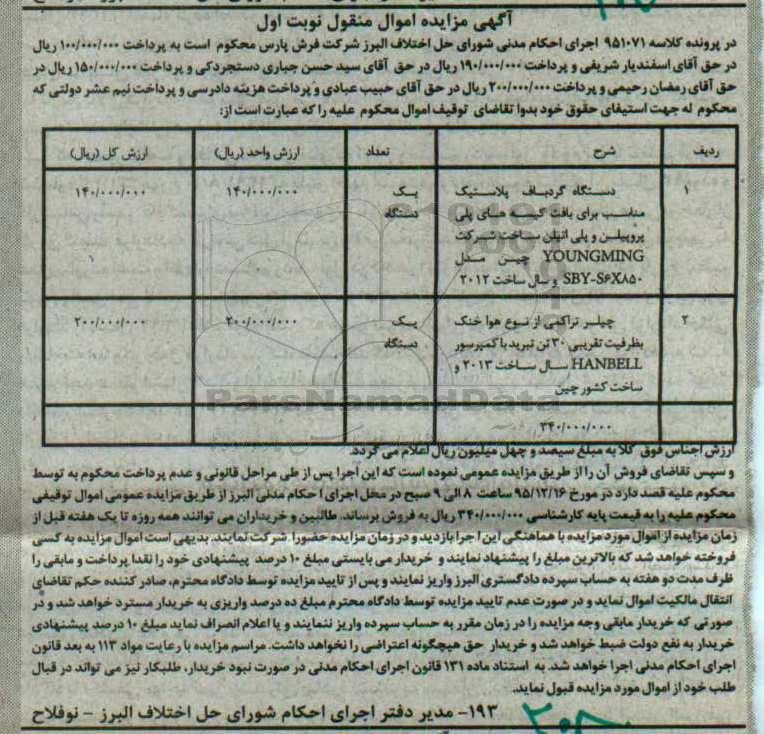 آگهی مزایده اموال منقول نوبت اول
در پرونده کلاسه ۹۵۱۰۷۱ اجرای احکام مدنی شورای حل اختلاف البرز شرکت فرش پارس محکوم است به پرداخت ۱۰۰/۰۰۰/۰۰۰ ریال
در حق آقای اسفندیار شریفی و پرداخت ۱۹۰/۰۰۰/۰۰۰ ریال در حق آقای سید حسن جباری دستجردکی و پرداخت ۱۵۰/۰۰۰/۰۰۰ ریال در
حق آقای رمضان رحیمی و پرداخت ۲۰۰/۰۰۰/۰۰۰ ریال در حق آقای حبیب عبادی و پرداخت هزینه دادرسی و پرداخت نیم عشر دولتی که
محکوم له جهت استیفای حقوق خود بدوا تقاضای توقیف اموال محکوم علیه را که عبارت است از:
ردیف شرح تعداد ارزش واحد (ریال) ارزش کل (ریال)
۱ دستگاه گردباف پلاستیک یک ۱۴۰/۰۰۰/۰۰۰ ۱۴۰/۰۰۰/۰۰۰
مناسب برای بافت کیسه های پلی دستگاه
پروپیلن و پلی اتیلن ساخت شرکت
YOUNGMING چین مدل
SBY-S۶X۸۵۰ و سال ساخت ۲۰۱۲
۲ چیلر تراکمی از نوع هوا خنک یک ۲۰۰/۰۰۰/۰۰۰ ۲۰۰/۰۰۰/۰۰۰
بظرفیت تقریبی ۳۰ تن تبرید با کمپرسور دستگاه
HANBELL سال ساخت ۲۰۱۳ و
ساخت کشور چین
۳۴۰/۰۰۰/۰۰۰
ParsNamadData
ارزش اجناس فوق کلا به مبلغ سیصد و چهل میلیون ریال اعلام می گردد.
و سپس تقاضای فروش آن را از طریق مزایده عمومی نموده است که این اجرا پس از طی مراحل قانونی و عدم پرداخت محکوم به توسط
محکوم علیه قصد دارد در مورخ ۹۵/۱۲/۱۶ ساعت ۸ الی ۹ صبح در محل اجرای احکام مدنی البرز از طریق مزایده عمومی اموال توقیفی
محکوم علیه را به قیمت پایه کارشناسی ۳۴۰/۰۰۰/۰۰۰ ریال به فروش برساند. طالبین و خریداران می توانند همه روزه تا یک هفته قبل از
زمان مزایده از اموال مورد مزایده با هماهنگی این اجرا بازدید و در زمان مزایده حضورا شرکت نمایند. بدیهی است اموال مزایده به کسی
فروخته خواهد شد که بالاترین مبلغ را پیشنهاد نمایند و خریدار می بایستی مبلغ ۱۰ درصد پیشنهادی خود را نقدا پرداخت و مابقی را
ظرف مدت دو هفته به حساب سپرده دادگستری البرز واریز نمایند و پس از تایید مزایده توسط دادگاه محترم، صادر کننده حکم تقاضای
انتقال مالکیت اموال نماید و در صورت عدم تایید مزایده توسط دادگاه محترم مبلغ ده درصد واریزی به خریدار مسترد خواهد شد و در
صورتی که خریدار مابقی وجه مزایده را در زمان مقرر به حساب سپرده واریز ننمایند و یا اعلام انصراف نماید مبلغ ۱۰ درصد پیشنهادی
خریدار به نفع دولت ضبط خواهد شد و خریدار حق هیچگونه اعتراضی را نخواهد داشت. مراسم مزایده با رعایت مواد ۱۱۳ به بعد قانون
اجرای احکام مدنی اجرا خواهد شد. به استناد ماده ۱۳۱ قانون اجرای احکام مدنی در صورت نبود خریدار، طلبکار نیز می تواند در قبال
طلب خود از اموال مورد مزایده قبول نماید.
۱۹۳- مدیر دفتر اجرای احکام شورای حل اختلاف البرز - نوفلاح